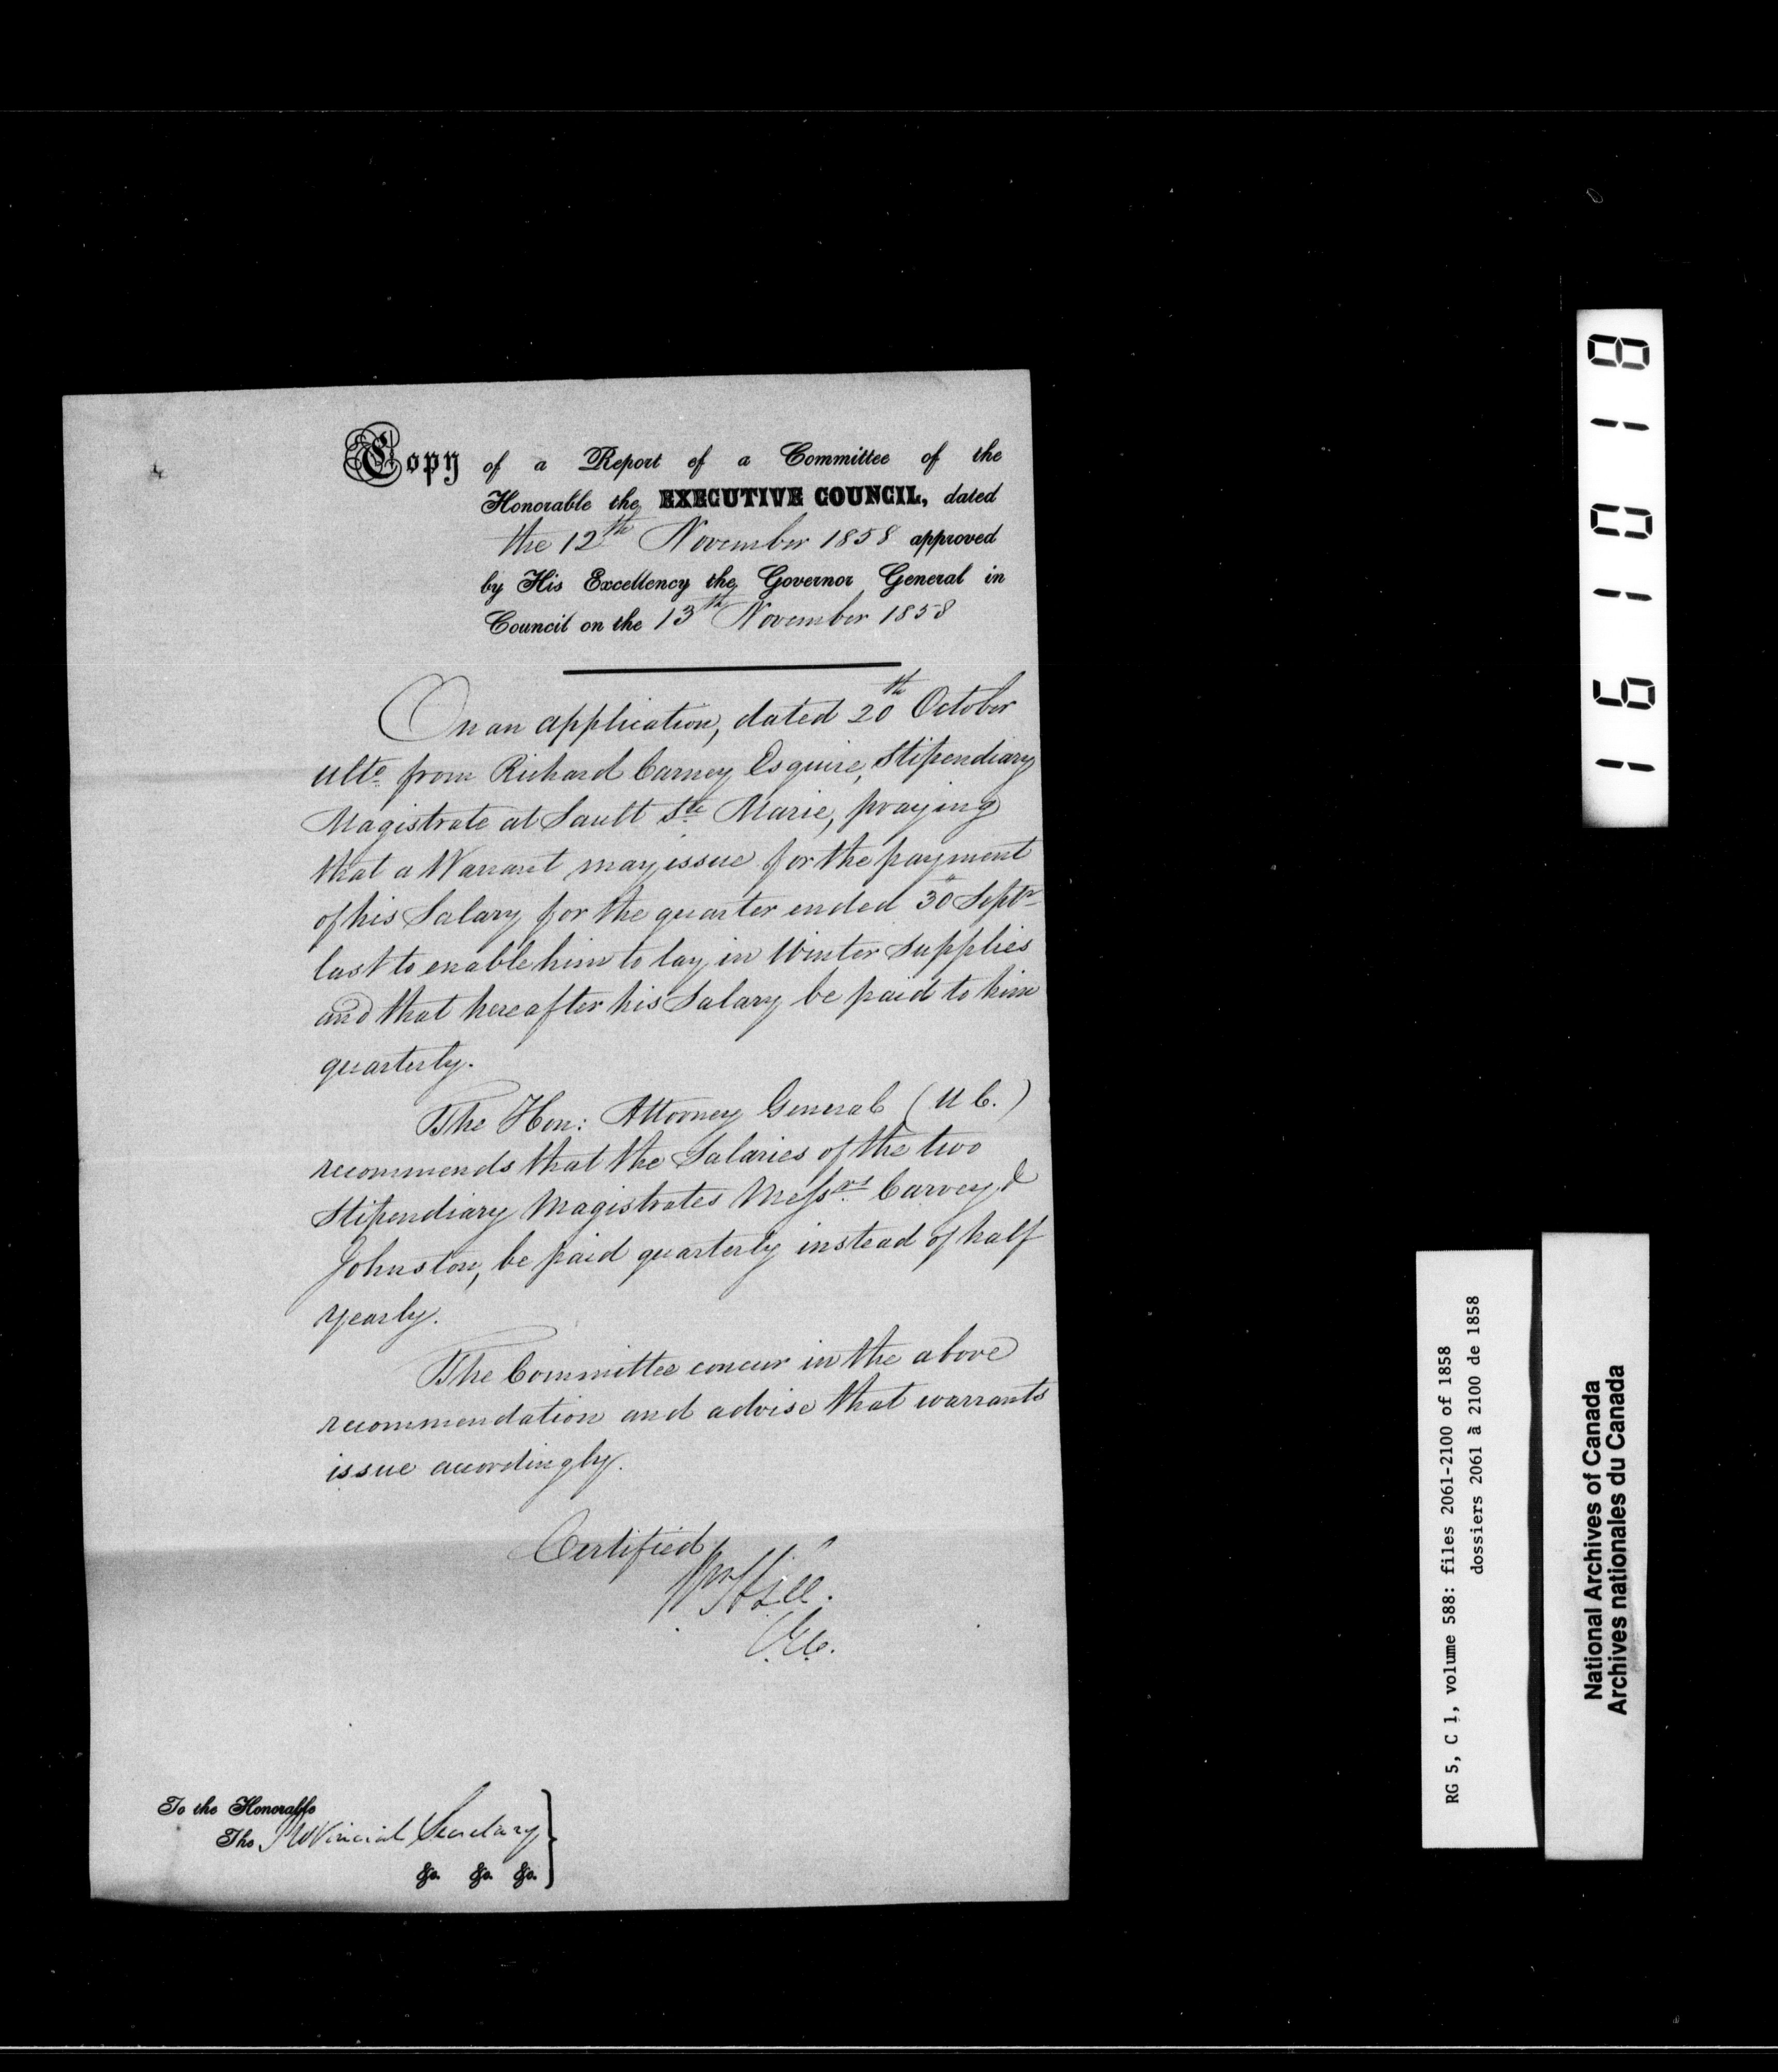 Copy of a Report of a Committee of the
Honorable the EXECUTIVE COUNCIL, dated
the 12th November 1858 approved
by His Excellency the Governor General in
Council on the 13th November 1858
On an application, dated 20th October
ulto from Richard Carney Esquire, Stipendiary
Magistrate at Sault Ste Marie, praying
that a Warrant may issue for the payment
of his Salary for the quarter ended 30th Septr
last to enable him to lay in Winter Supplies
and that hereafter his Salary be paid to him
quarterly.
The Hon: Attorney General (U C.)
recommends that the Salaries of the two
Stipendiary Magistrates Messrs Carney &
Johnston, be paid quarterly instead of half
yearly.
The Committee concur in the above
recommendation and advise that warrants
issue accordingly.
Certified
Wm H Lee.
C.E.C.
To the Honorable
The Provincial Secretary
&c. &c. &c.
161018
RG 5, C 1, volume 588: files 2061-2100 of 1858
dossiers 2061 à 2100 de 1858
National Archives of Canada
Archives nationales du Canada